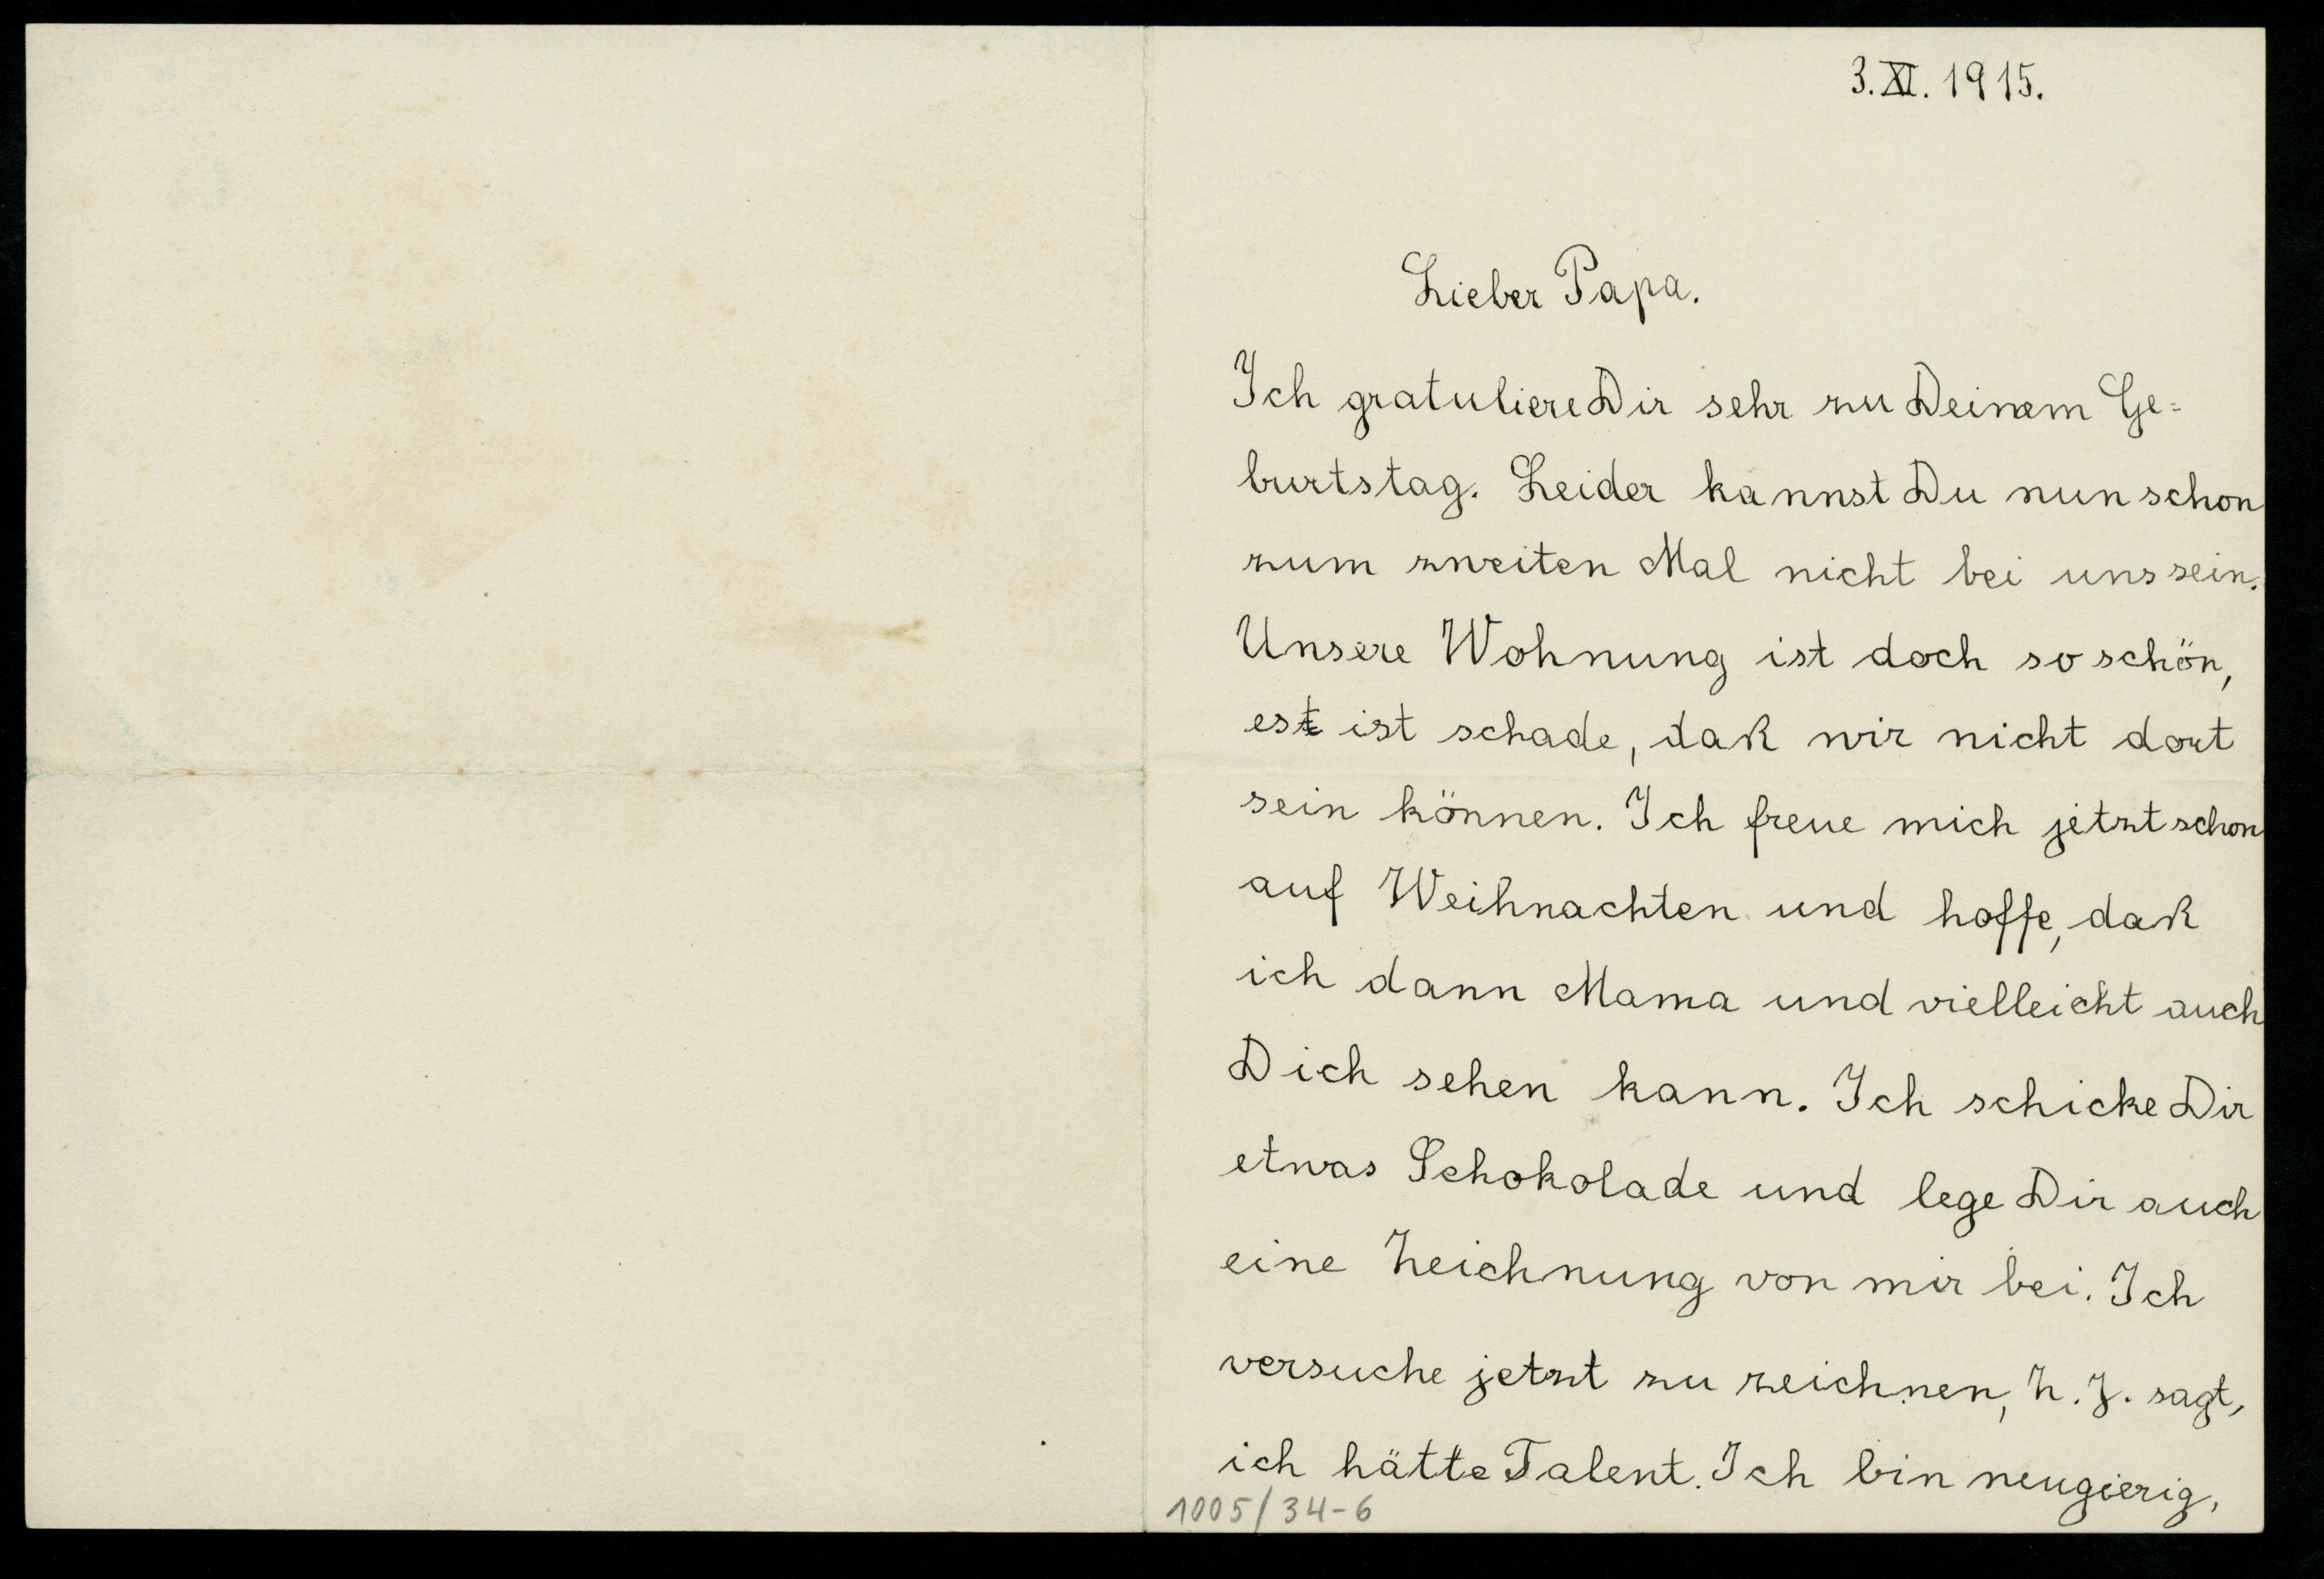 3. XI. 1915.
Lieber Papa.
Ich gratuliere Dir sehr zu Deinem Ge=
burtstag. Leider kannst Du nun schon
zum zweiten Mal nicht bei uns sein.
Unsere Wohnung ist doch so schön,
est ist schade, daß wir nicht dort
sein können. Ich freue mich jetzt schon
auf Weihnachten und hoffe, daß
ich dann Mama und vielleicht auch
Dich sehen kann. Ich schicke Dir
etwas Schokolade und lege Dir auch
eine Zeichnung von mir bei. Ich
versuche jetzt zu zeichnen, sagt,
ich hätte Talent. Ich bin neugierig,
1005/34-6